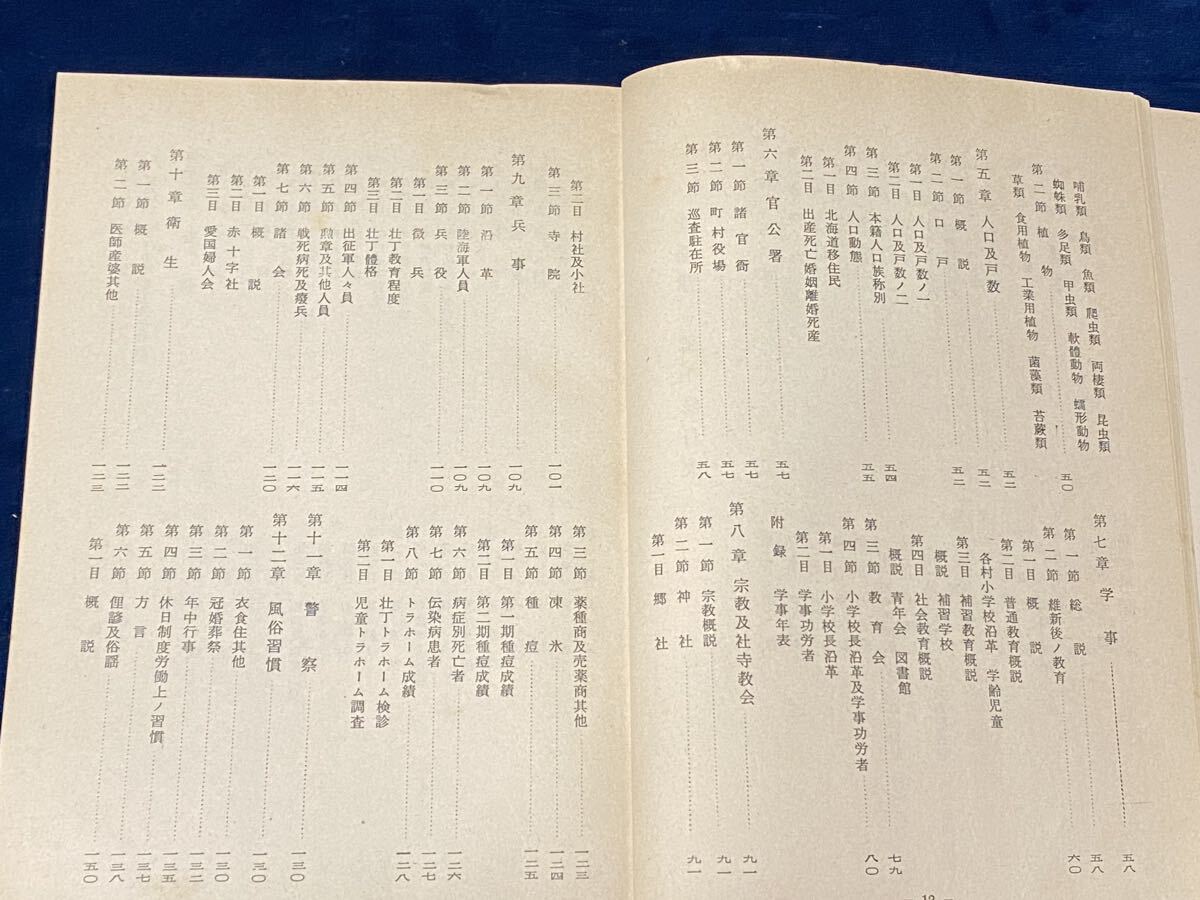 哺乳類 鳥類 魚類 爬虫類 両棲類 昆虫類
蜘蛛類 多足類 甲虫類 軟體動物 蠕形動物
第二節 植物……五〇
草類 食用植物 工業用植物 菌藻類 苔蕨類
第五章 人口及戸数……五二
第一節 概説……五二
第二節 口戸……五二
第一目 人口及戸数ノ一
第二目 人口及戸数ノ二……五四
第三節 本籍人口族称別……五五
第四節 人口動態
第一目 北海道移住民
第二目 出産死亡婚姻離婚死産
第六章 官公署……五七
第一節 諸官衙……五七
第二節 町村役場……五七
第三節 巡査駐在所……五八
第七章 学事……五八
第一節 総説……五八
第二節 維新後ノ教育……六〇
第一目 概説
第二目 普通教育概説
各村小学校沿革 学齢児童
第三目 補習教育概説
概説 補習学校
第四目 社会教育概説
概説 青年会 図書館……七九
第三節 教育会……八〇
第四節 小学校長沿革及学事功労者
第一目 小学校長沿革
第二目 学事功労者
附録 学事年表
第八章 宗教及社寺教会……九一
第一節 宗教概説……九一
第二節 神社……九一
第一目 郷社
12
第二目 村社及小社
第三節 寺院……一〇一
第九章 兵事……一〇九
第一節 沿革……一〇九
第二節 陸海軍人員……一〇九
第三節 兵役……一一〇
第一目 徴兵
第二目 壮丁教育程度
第三目 壮丁体格
第四節 出征軍人々員……一一四
第五節 勲章及其他人員……一一五
第六節 戦死病死及癈兵……一一六
第七節 諸会……一二〇
第一目 概説
第二目 赤十字社
第三目 愛国婦人会
第十章 衛生……一二二
第一節 概説……一二二
第二節 医師産婆其他……一二三
第三節 薬種商及売薬商其他……一二三
第四節 凍氷……一二四
第五節 種痘……一二五
第一目 第一期種痘成績
第二目 第二期種痘成績
第六節 病症別死亡者……一二六
第七節 伝染病患者……一二七
第八節 トラホーム成績……一二八
第一目 壮丁トラホーム検診
第二目 児童トラホーム調査
第十一章 警察……一三〇
第十二章 風俗習慣……一三〇
第一節 衣食住其他
第二節 冠婚葬祭……一三〇
第三節 年中行事……一三二
第四節 休日制度労働上ノ習慣……一三五
第五節 方言……一三七
第六節 俚諺及俗謡……一三八
第一目 概説……一五〇